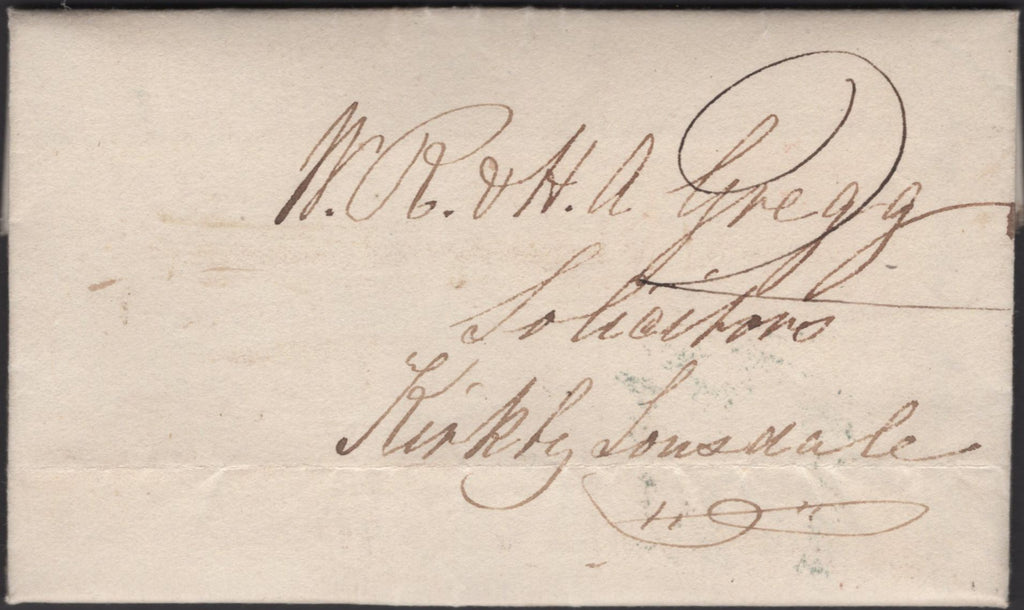 W. R. & H. A Gregg
Solicitors
Kirkby Lonsdale